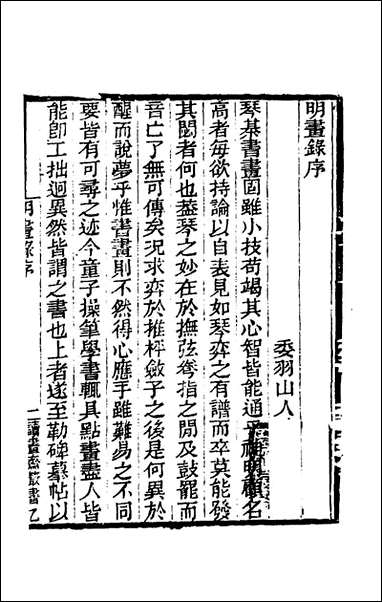 明畫錄序
委羽山人
琴棊書畫固雖小技苟竭其心智皆能通乎神明顧名
高者每欲持論以自表見如琴弈之有譜而卒莫能發
其閟者何也葢琴之妙在於撫弦發指之間及鼓罷而
音亡了無可傳矣況求弈於推枰斂子之後是何異於
醒而說夢乎惟書畫則不然得心應手雖難易之不同
要皆有可尋之迹今童子操筆學書輒具點畫盡人皆
能卽工拙迥異然皆謂之書也上者遂至勒碑摹帖以
明畫錄序
一
讀畫齋叢書